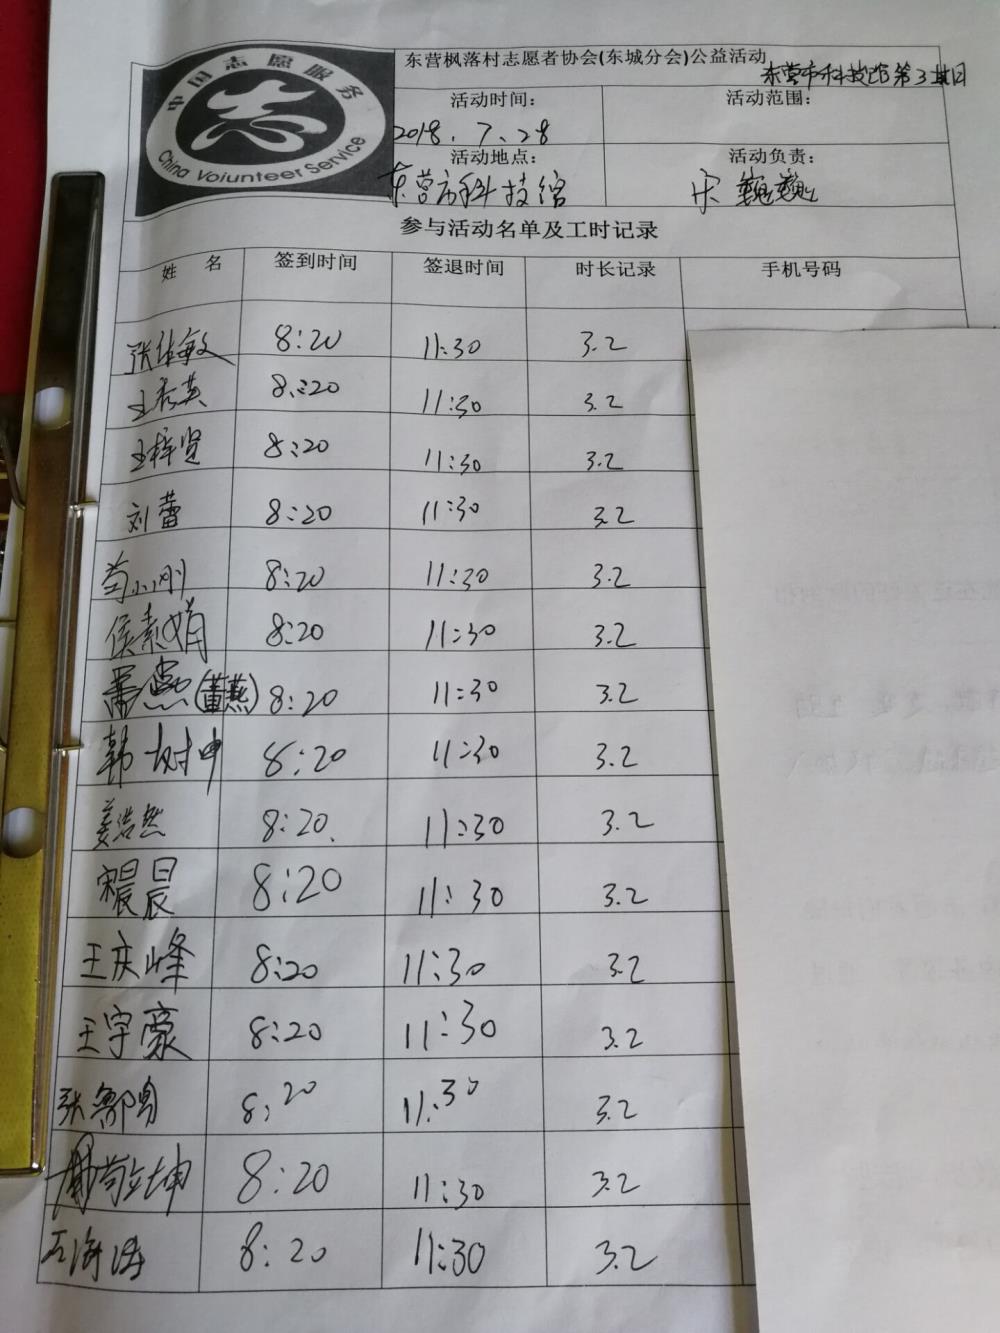 中国志愿服务
志
China Voiunteer Service
东营枫落村志愿者协会(东城分会)公益活动
东营市科技馆第3期
活动时间：
活动范围：
2018.7.28
活动地点：
活动负责：
东营市科技馆
宋巍巍
参与活动名单及工时记录
姓 名 签到时间 签退时间 时长记录 手机号码
张佳敏 8:20 11:30 3.2
王秀英 8:20 11:30 3.2
王梓贤 8:20 11:30 3.2
刘蕾 8:20 11:30 3.2
苟小刚 8:20 11:30 3.2
侯素娟 8:20 11:30 3.2
(董燕) 8:20 11:30 3.2
韩树申 8:20 11:30 3.2
姜浩然 8:20 11:30 3.2
宋晨晨 8:20 11:30 3.2
王庆峰 8:20 11:30 3.2
王宇豪 8:20 11:30 3.2
张鲁 8:20 11:30 3.2
8:20 11:30 3.2
石海涛 8:20 11:30 3.2